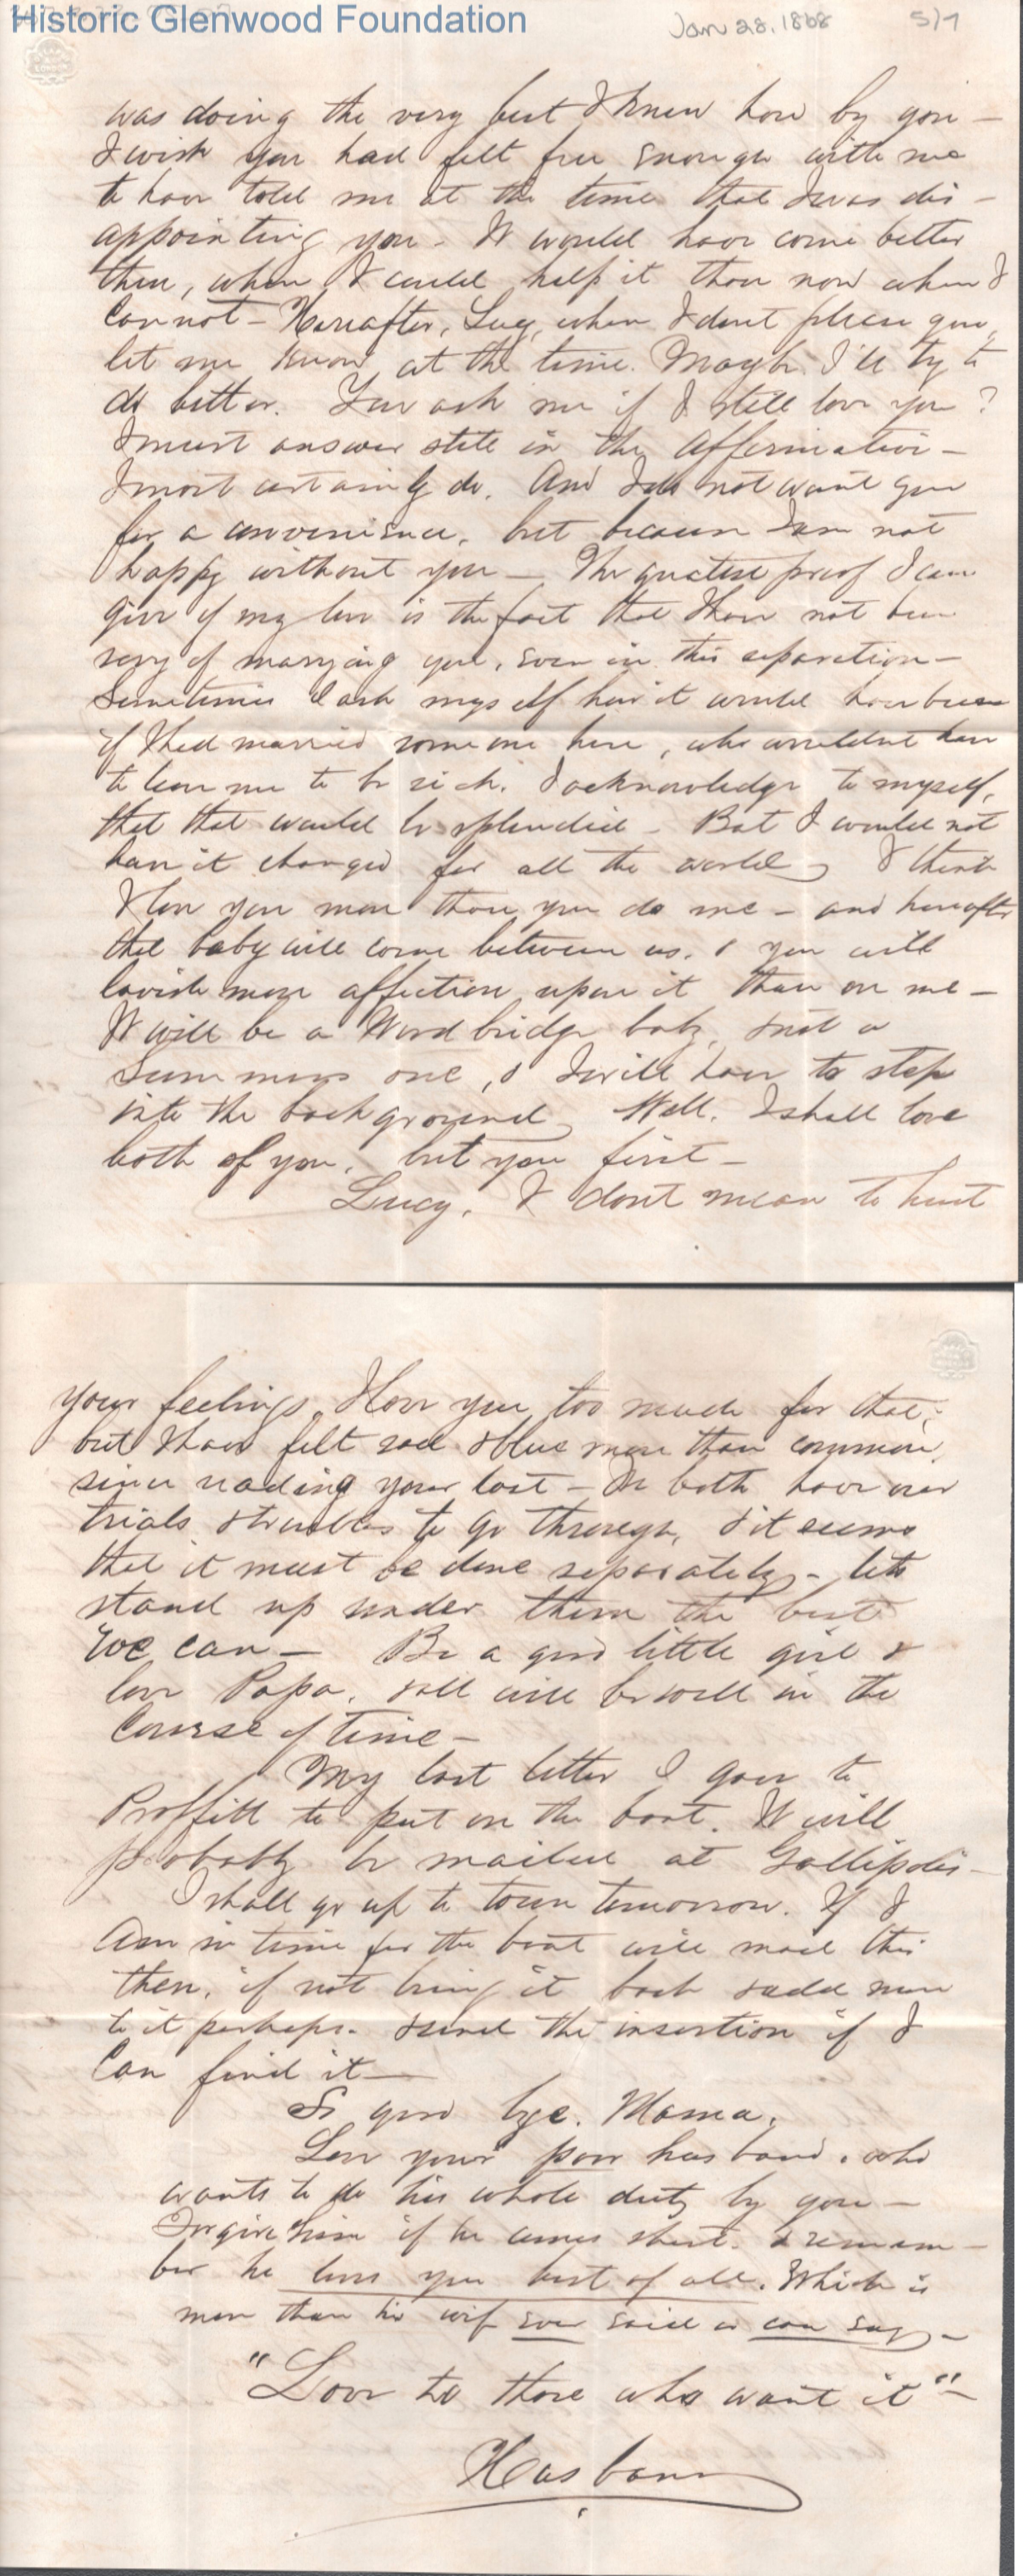 Historic Glenwood Foundation
Jan 28, 1868 5/7
was doing the very best I knew how by you -
I wish you had felt free enough with me
to have told me at the time that I was dis -
appointing you - It would have come better
then, when I could help it than now when I
cannot - Hereafter, Lucy, when I dont please you,
let me know at the time. Maybe I'll try to
do better. You ask me if I still love you?
I must answer still in the affirmative -
I most certainly do. And I do not want you
for a convenience, but because I am not
happy without you - The greatest proof I can
give of my love is the fact that I have not been
sorry of marrying you, even in this separation -
Sometimes I ask myself how it would have been
if I had married some one here, who wouldnt have
to leave me to be sick. I acknowledge to myself,
that that would be splendid - But I would not
have it changed for all the world I think
I love you more than you do me - and hereafter
that baby will come between us. & you will
lavish more affection upon it than on me -
It will be a Woodbridge baby, not a
Summers one, & I will have to step
into the background Well. I shall love
both of you, but you first -
Lucy, I dont mean to hurt
your feelings, I love you too much for that;
but I have felt sad & blue more than common,
since reading your last - We both have our
trials & troubles to go through, & it seems
that it must be done separately - lets
stand up under them the best
we can - Be a good little girl &
love Papa, & all will be well in the
Course of time -
My last letter I gave to
Proffitt to put on the boat. It will
probably be mailed at Gallipolis -
I shall go up to town tomorrow. If I
am in time for the boat will mail this
then, if not bring it back & add more
to it perhaps - & send the insertion if I
can find it -
So good bye. Mama,
Love your poor husband, who
wants to do his whole duty by you -
Forgive him if he comes short. & remem -
ber he loves you best of all. Which is
more than his wife ever said or can say -
"Love to those who want it" -
Husband